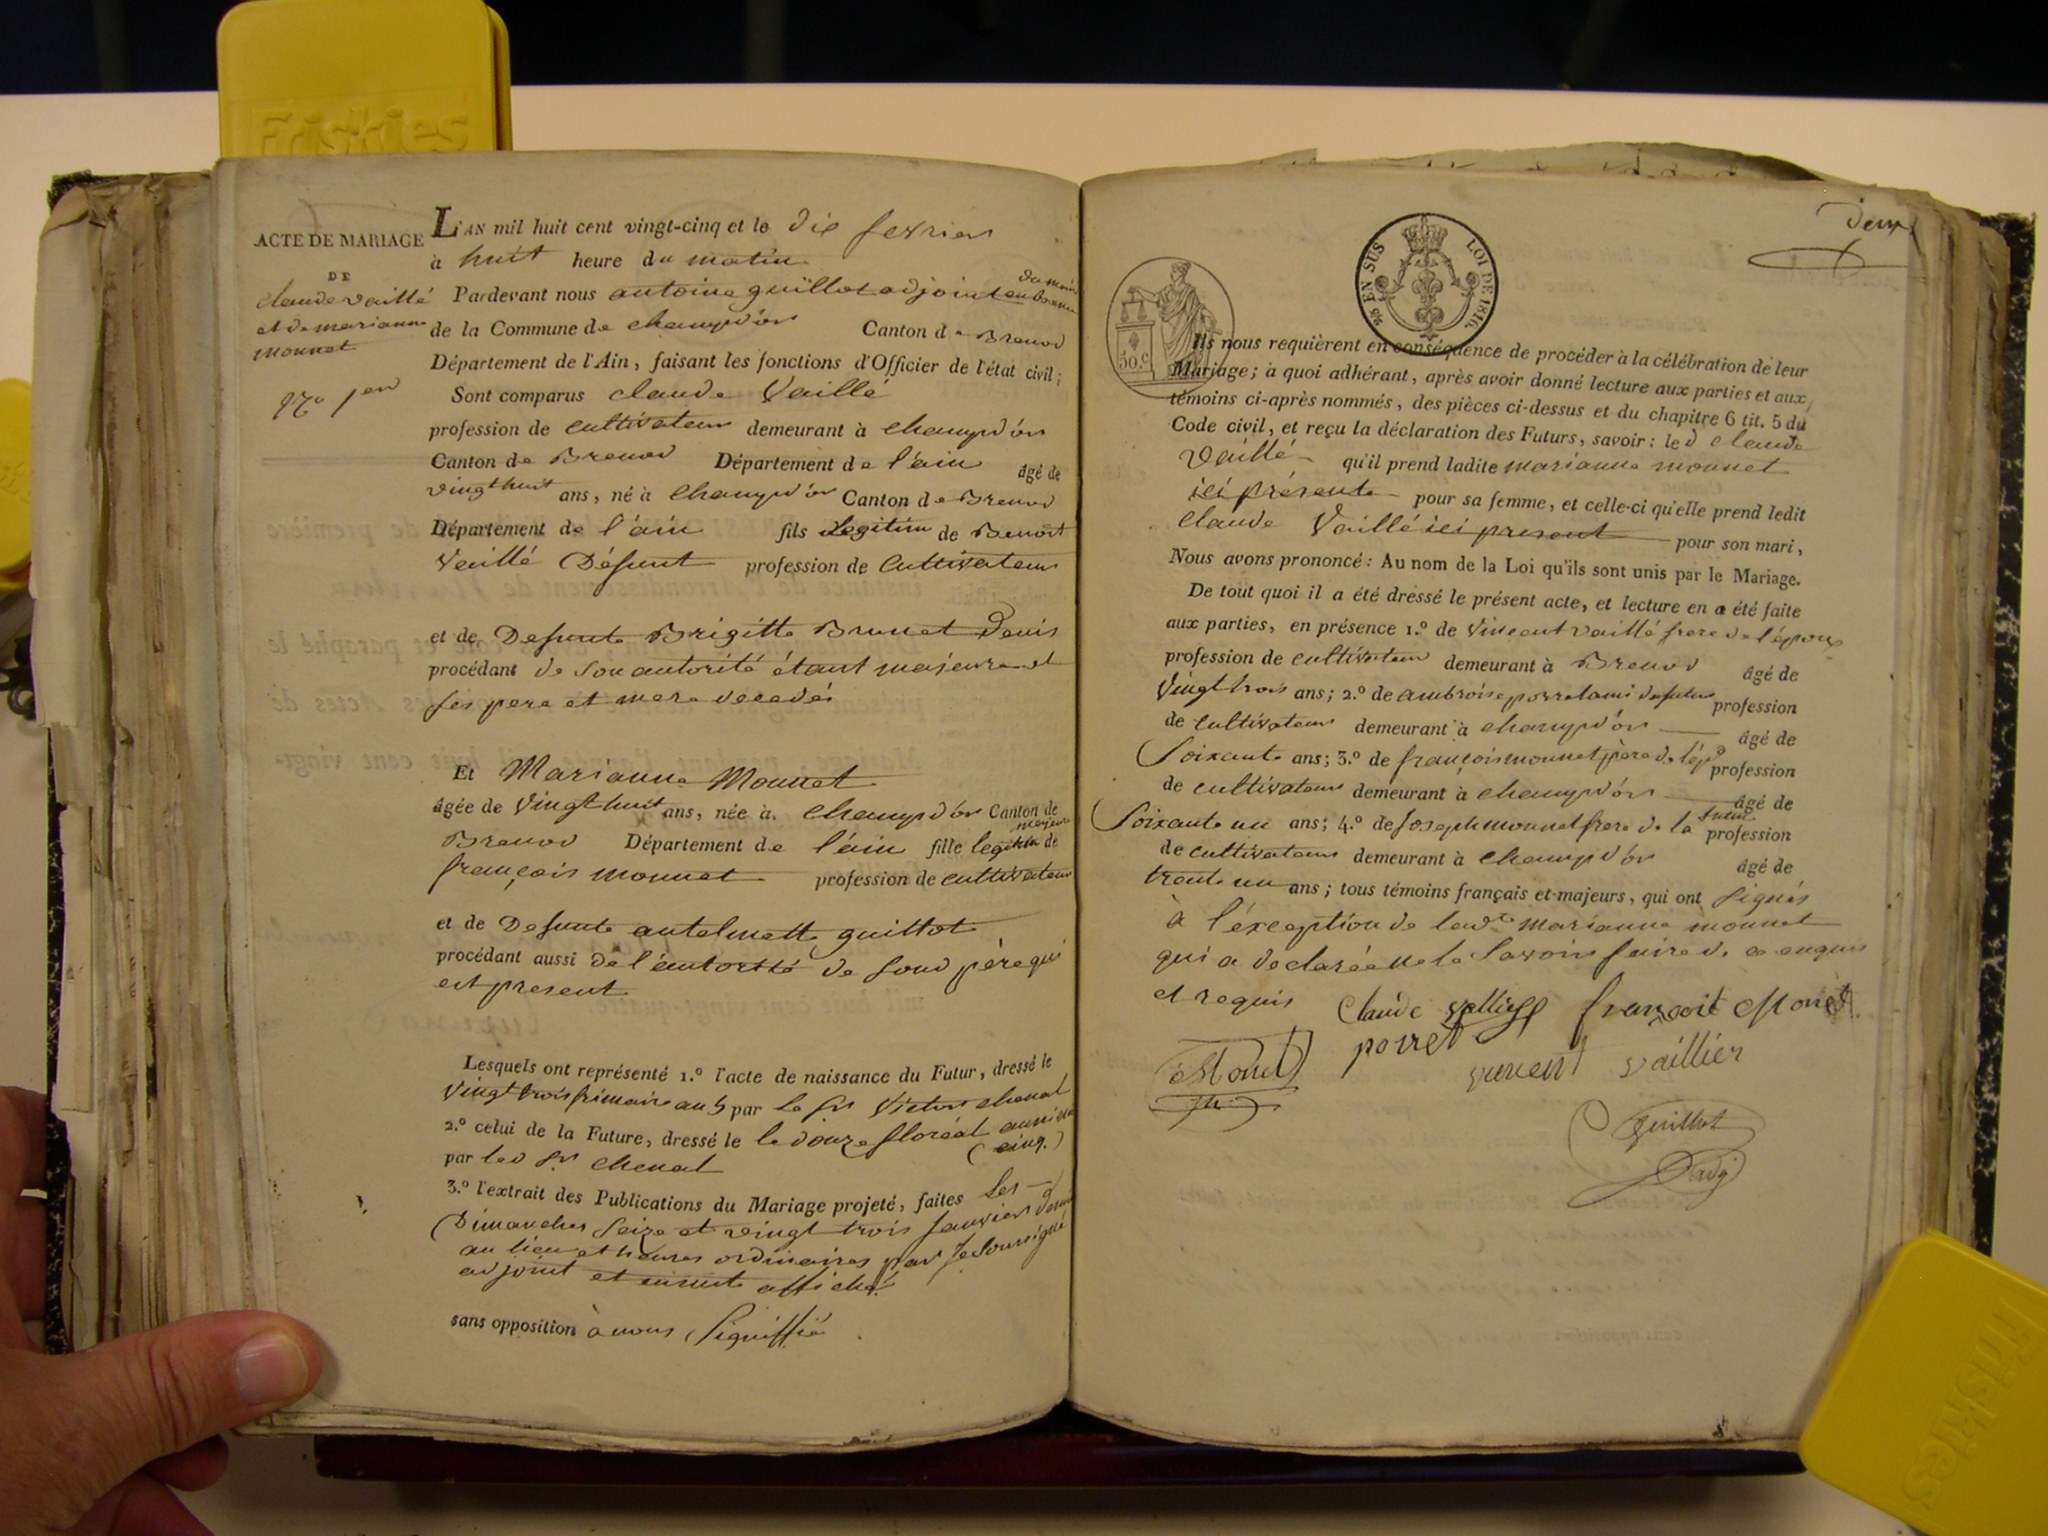 Friskies
ACTE DE MARIAGE
DE
claude vaillé
et de marianne
monnet
N.o 1er
L'AN mil huit cent vingt-cinq et le dix fevrier
à huit heure du matin
Pardevant nous antoine guillot adjoint au
du maire
de la Commune de champd'or Canton de Brenod
Département de l'Ain, faisant les fonctions d'Officier de l'état civil;
Sont comparus claude Vaillé
profession de cultivateur demeurant à champd'or
Canton de Brenod Département de l'ain âgé de
vingt huit ans, né à champd'or Canton de Brenod
Département de l'ain fils legitim de Benoit
Vaillé Défunt profession de cultivateur
et de Defunte Brigitte Brunet
procédant de son autorité étant majeure et
ses pere et mere decedés
Et Marianne Monnet
âgée de vingt huit ans, née à champd'or Canton de
majeure
Brenod Département de l'ain fille legitim de
françois monnet profession de cultivateur
et de Defunte antelmette guillot
procédant aussi de l'autorité de soud père qui
est present
Lesquels ont représenté 1.º l'acte de naissance du Futur, dressé le
vingt trois frimaire an 5 par le sr Victor chenal
2.º celui de la Future, dressé le le douze floréal
(cinq.)
par led sr chenal
3.º l'extrait des Publications du Mariage projeté, faites les
Dimanches seize et vingt trois janvier dernier
au lieu et heures ordinaires par le soussigné
adjoint et ensuite affiché
sans opposition à nous signiffié
deux
25 EN SUS LOI DE 1816.
50.c
Ils nous requièrent en conséquence de procéder à la célébration de leur
Mariage; à quoi adhérant, après avoir donné lecture aux parties et aux
témoins ci-après nommés, des pièces ci-dessus et du chapitre 6 tit. 5 du
Code civil, et reçu la déclaration des Futurs, savoir: le d claude
Vaillé qu'il prend ladite marianne monnet
ici présente pour sa femme, et celle-ci qu'elle prend ledit
claude Vaillé ici present pour son mari,
Nous avons prononcé: Au nom de la Loi qu'ils sont unis par le Mariage.
De tout quoi il a été dressé le présent acte, et lecture en a été faite
aux parties, en présence 1.º de vincent vaillé frere de l'époux
profession de cultivateur demeurant à Brenod âgé de
vingt trois ans; 2.º de ambroise porret ami du futur profession
de cultivateur demeurant à champd'or âgé de
soixante ans; 3.º de françois monnet père de l'ép profession
de cultivateur demeurant à champd'or âgé de
future
soixante un ans; 4.º de joseph monnet frere de la profession
de cultivateur demeurant à champd'or âgé de
trente un ans; tous témoins français et majeurs, qui ont signés
à l'éxception de lad.te marianne monnet
qui a declarée ne le savoir faire de ce enquis
et requis
Claude vallier françoit Monet
porret
Monet
vincent vaillier
Guillot
adj
Friskies